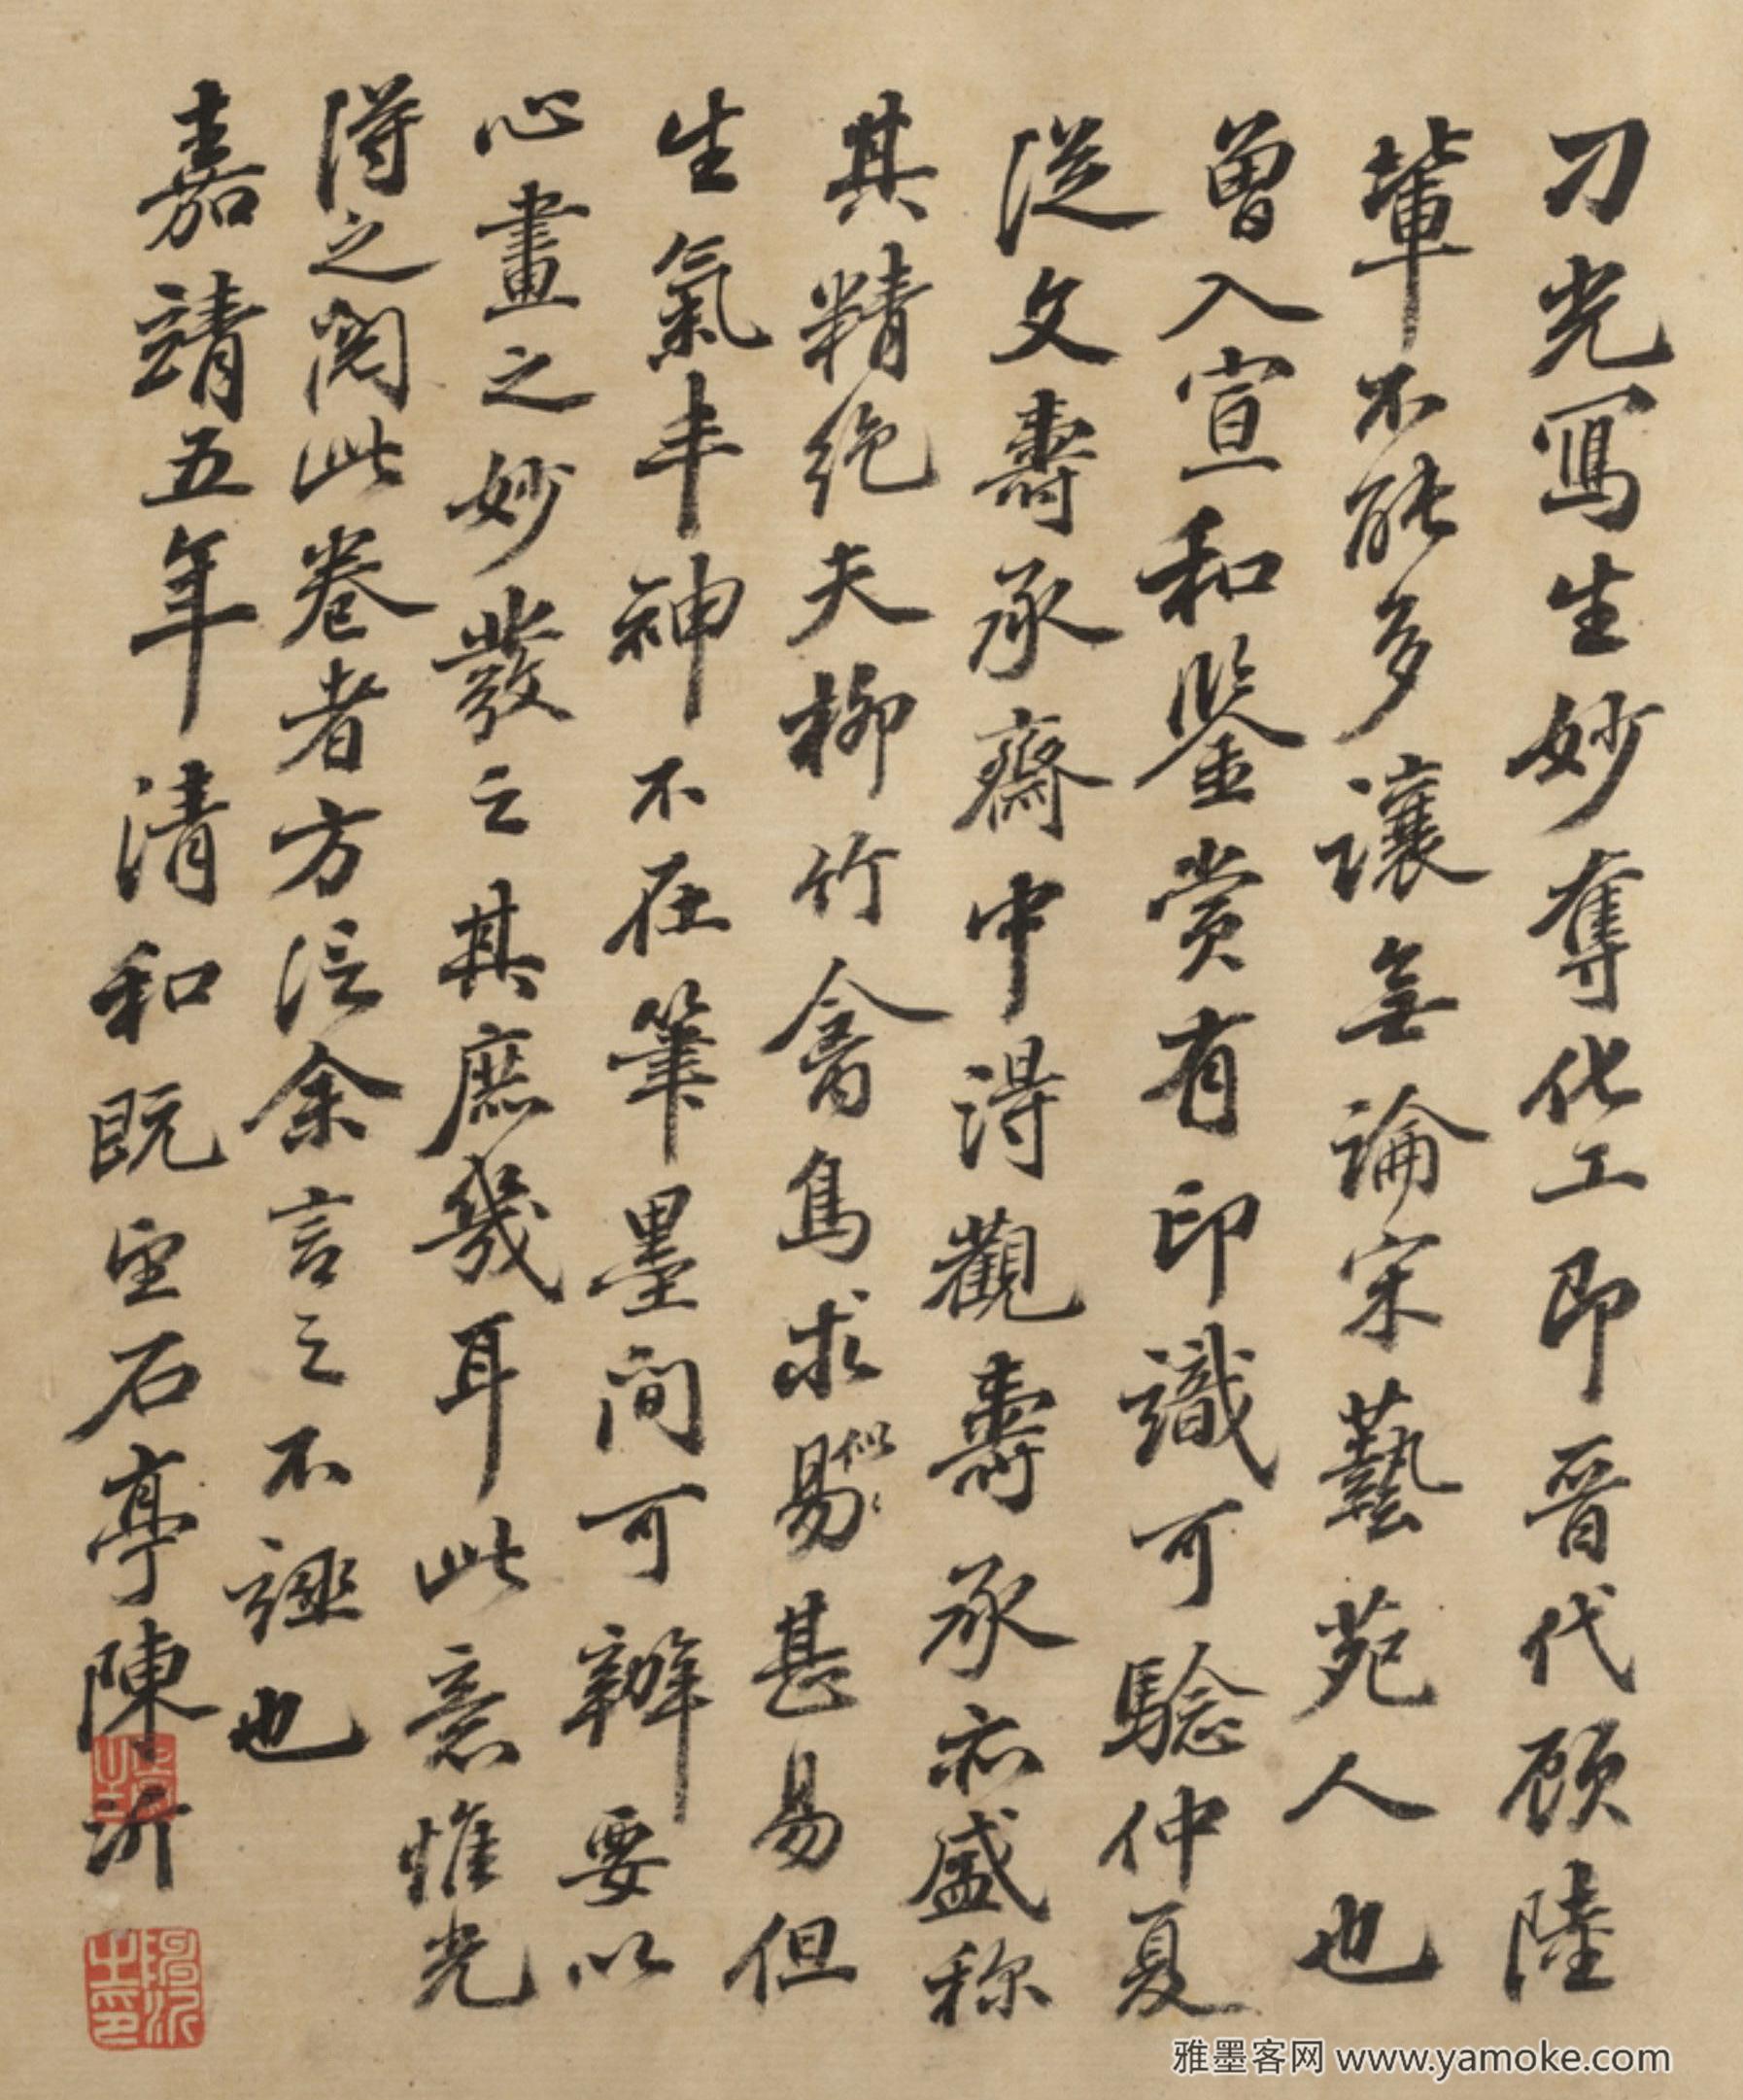 刁光寫生妙奪化工即晉代顧陸
輩不能多讓無論宋藝苑人也
曾入宣和鑒賞有印識可驗仲夏
從文壽承齋中得觀壽承亦盛稱
其精絕夫柳竹禽鳥求易似〻甚易但
生氣丰神不在筆墨間可辦要以
心畫之妙發之其庶幾耳此意惟光
得之閱此卷者方信余言之不誣也
嘉靖五年清和既望石亭陳沂
雅墨客网 www.yamoke.com